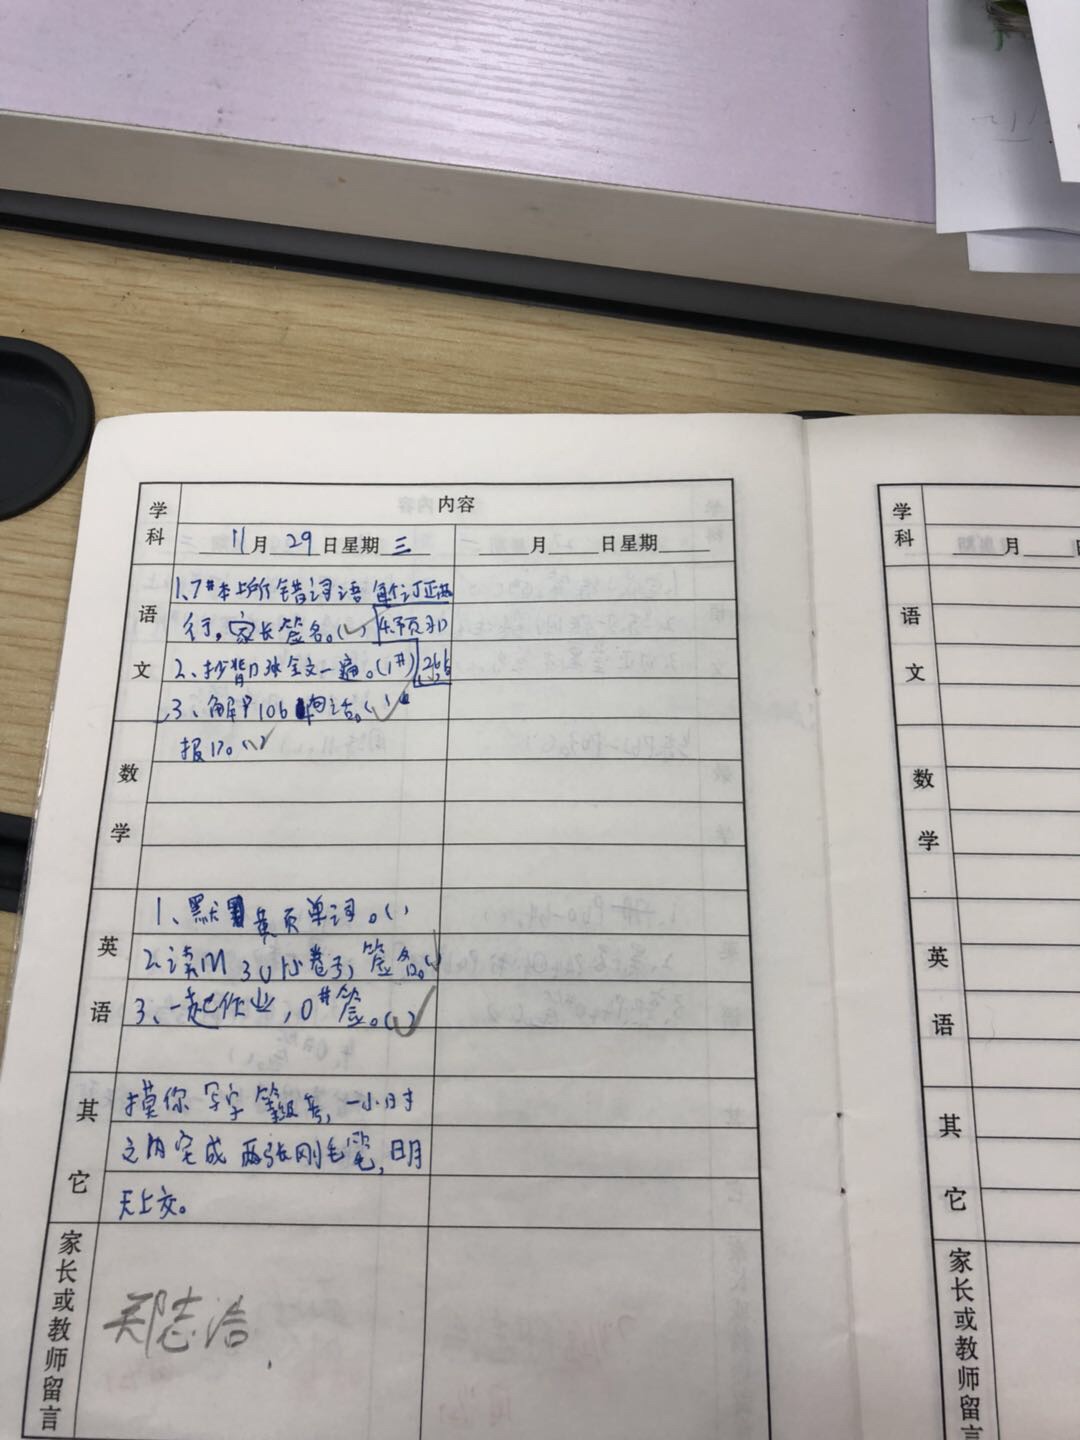 学科
内容
11月29日星期三
月 日星期
语文
1、7#本上所错词语每个订正两
行。家长签名。(✓) 4.预习
2、抄背 全文一遍。(1#) 26
3、解P106 词语。( ) ✓
数学
报17。(✓)
英语
1、默 黄页单词。( )
2、读 3U 卷子，签名。( )
3、一起作业，0#签。(✓)
其它
摸你写字等级考，一小时
之内完成两张刚毛笔，明
天上交。
家长或教师留言
郑志浩
学科
月
语文
数学
英语
其它
家长或教师留言